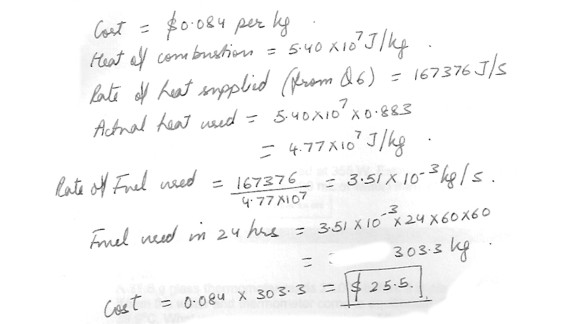 Cost = $0.084 per kg.
Heat of combustion = 5.40 x10^7 J/kg.
Rate of heat supplied (from Q6) = 167376 J/s
Actual heat used = 5.40x10^7 x 0.883
= 4.77x10^7 J/kg.
Rate of Fuel used = 167376 / 4.77x10^7 = 3.51 x 10^-3 kg/s.
Fuel used in 24 hrs = 3.51 x 10^-3 x 24 x 60 x 60
= 303.3 kg.
Cost = 0.084 x 303.3 = $ 25.5.